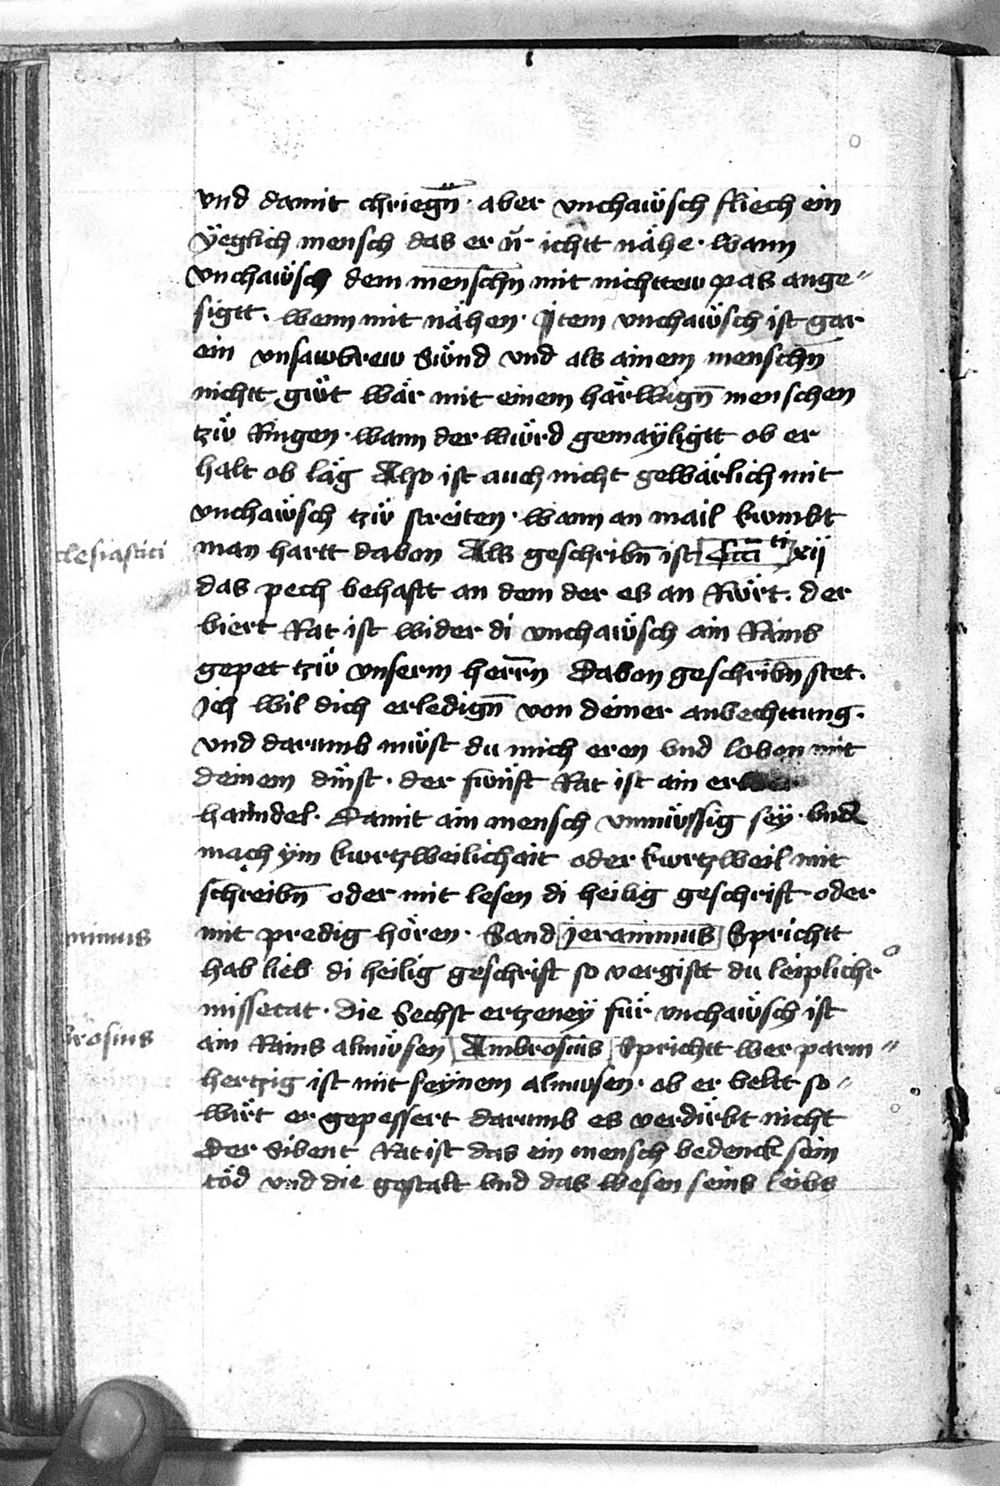 vnd damit chriegn̄ · aber vnchaẅsch fliech ein
ÿeglich mensch das er ir ichtt nähe · wann
vnchaẅsch dem menschn̄ mit nichttew pas ange〃
sigtt · wenn mit nähen · Item vnchaẅsch ist gar
ein vnsawbrew Sẅnd vnd als ainem menschn̄
nichtt gẅt wär mit einem härwign̄ menschen
tzẅ Ringen · wann der wẅrd gemaÿligtt ob er
halt ob läg Also ist auch nicht gewärlich mit
vnchaẅsch tzẅ streiten · wann an mail kwmbt
clesiastici
man hartt dabon Als geschribn̄ ist Eccᵗⁱ xij
das pech behaftt an dem der es an Rẅrt · der
biert Rat ist wider di vnchaẅsch ain Rains
gepet tzẅ vnserm herrn̄ Dabon geschribn̄ stet ·
Ich wil dich erledign̄ von deiner anbechttung ·
vnd darumb mẅst du mich eren bnd loben mit
deinem dinst · der fẅnft Rat ist ain erber
hanndel · Damit ain mensch vnmẅssig seÿ · bnd
mach ÿm kwrtzweilichait oder kwrtzweil mit
schreibn̄ oder mit lesen di heilig geschrift oder
nimus
mit predig hören · Sand Jeranimus Sprichtt
hab lieb di heilig geschrift so vergistt du leipliche
missetat · die Sechst ertzeneÿ für vnchaẅsch ist
brosius
ain Rains almẅsen Ambrosius Sprichtt wer parm〃
hertzig ist mit seÿnem almẅsen · ob er beltt so〃
wirt er gepessert darumb es verdirbt nicht
Der Sibent Rat ist das ein mensch bedenck sein
töd vnd die gestalt bnd das wesen seins leibs